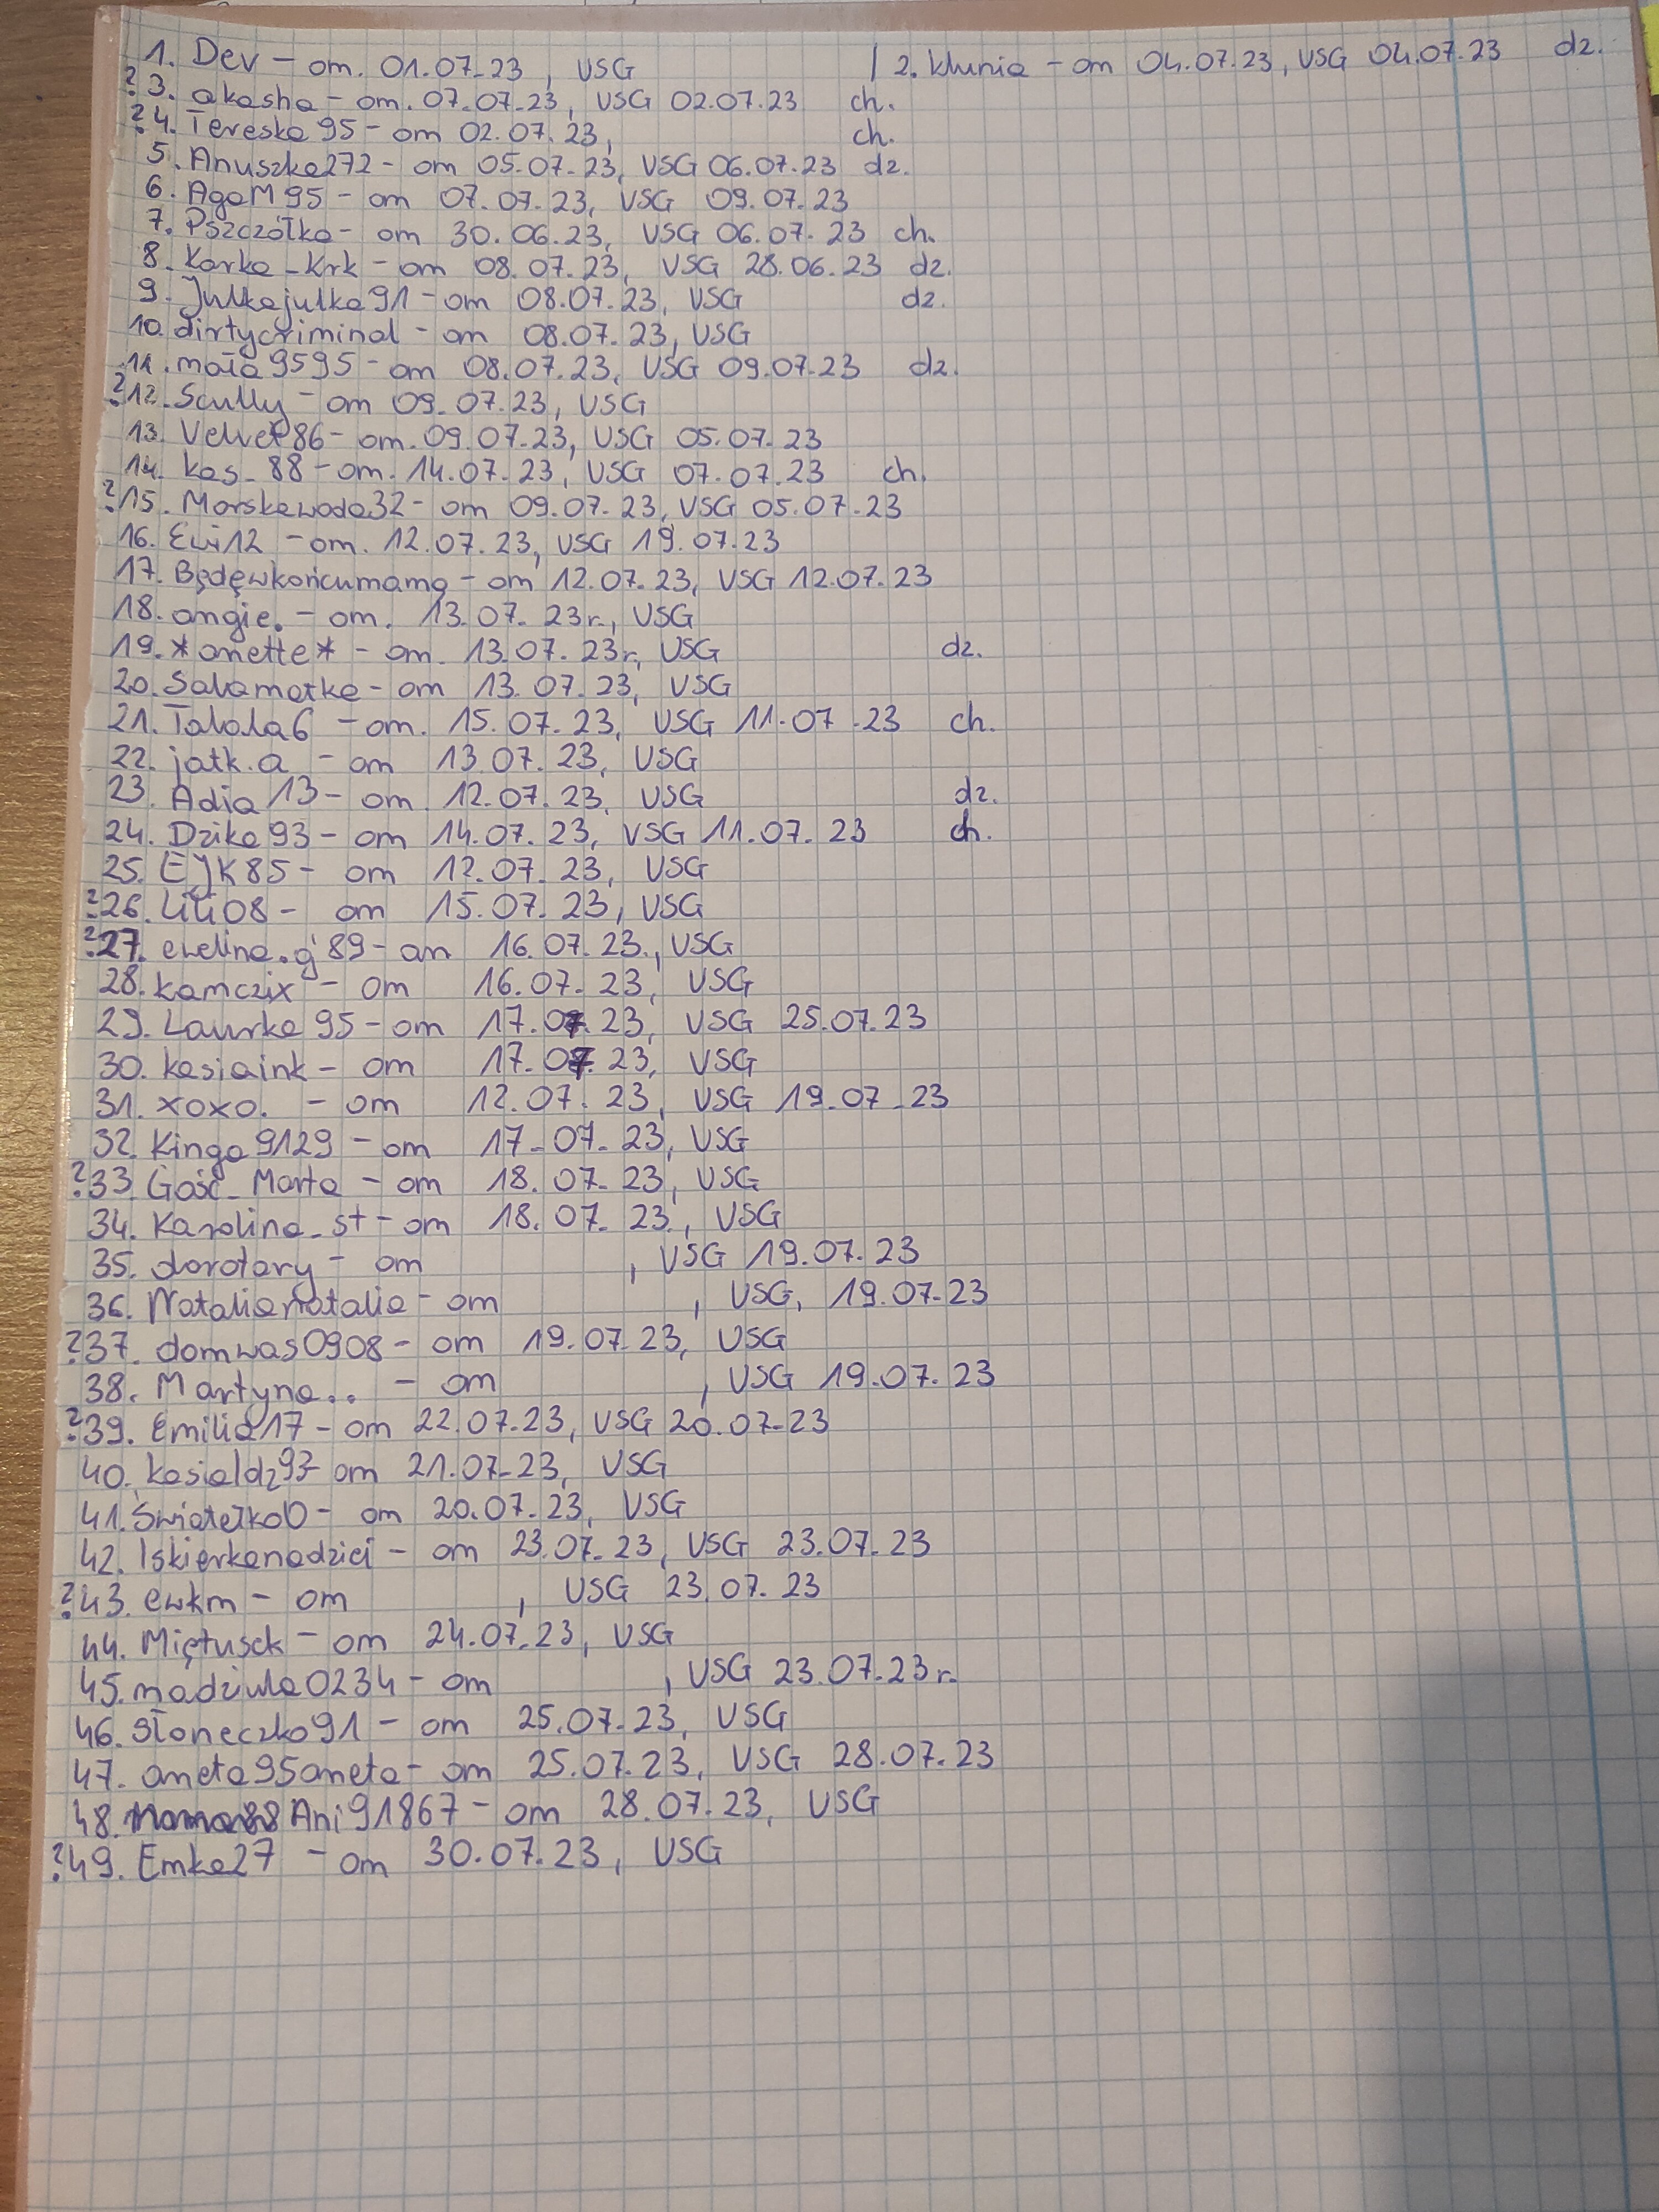 1. Dev - om. 01.07.23, USG | 2. klunia - om 04.07.23, USG 04.07.23 dz.
? 3. akasha - om. 07.07.23, USG 02.07.23 ch.
? 4. Tereska95 - om 02.07.23, ch.
5. Anuszka272 - om 05.07.23, USG 06.07.23 dz.
6. AgaM95 - om 07.07.23, USG 09.07.23
7. Pszczółka - om 30.06.23, USG 06.07.23 ch.
8. Karka_Krk - om 08.07.23, USG 28.06.23 dz.
9. Julkajulka91 - om 08.07.23, USG dz.
10. dirtycriminal - om 08.07.23, USG
11. mała9595 - om 08.07.23, USG 09.07.23 dz.
? 12. Scully - om 09.07.23, USG
13. Velvet86 - om. 09.07.23, USG 05.07.23
14. kas_88 - om. 14.07.23, USG 07.07.23 ch.
? 15. Morskawoda32 - om 09.07.23, USG 05.07.23
16. Ewi12 - om. 12.07.23, USG 19.07.23
17. Będęwkońcumamą - om 12.07.23, USG 12.07.23
18. angie. - om. 13.07.23r., USG
19. *anette* - om. 13.07.23r, USG dz.
20. Salamatka - om 13.07.23, USG
21. Takala6 - om. 15.07.23, USG 11.07.23 ch.
22. jatk.a - om 13.07.23, USG
23. Adia13 - om. 12.07.23, USG dz.
24. Dzika93 - om 14.07.23, USG 11.07.23 ch.
25. EJK85 - om 12.07.23, USG
? 26. Lili08 - om 15.07.23, USG
? 27. ewelina.g89 - om 16.07.23., USG
28. kamczix - om 16.07.23, USG
29. Laurka95 - om 17.07.23, USG 25.07.23
30. kasiaink - om 17.07.23, USG
31. xoxo. - om 12.07.23, USG 19.07.23
32. Kinga9129 - om 17.07.23, USG
? 33. Gość_Marta - om 18.07.23, USG
34. Karolina_st - om 18.07.23., USG
35. dorotary - om , USG 19.07.23
36. Natalianatalia - om , USG, 19.07.23
? 37. domwas0908 - om 19.07.23, USG
38. Martyna.. - om , USG 19.07.23
? 39. Emilia17 - om 22.07.23, USG 20.07.23
40. kasialdz93 - om 21.07.23, USG
41. Światełko0 - om 20.07.23, USG
42. Iskierkanadziei - om 23.07.23, USG 23.07.23
? 43. ewkm - om , USG 23.07.23
44. Miętusek - om 24.07.23, USG
45. madziula0234 - om , USG 23.07.23r.
46. Słoneczko91 - om 25.07.23, USG
47. aneta95aneta - om 25.07.23, USG 28.07.23
48. Ani91867 - om 28.07.23, USG
? 49. Emka27 - om 30.07.23, USG